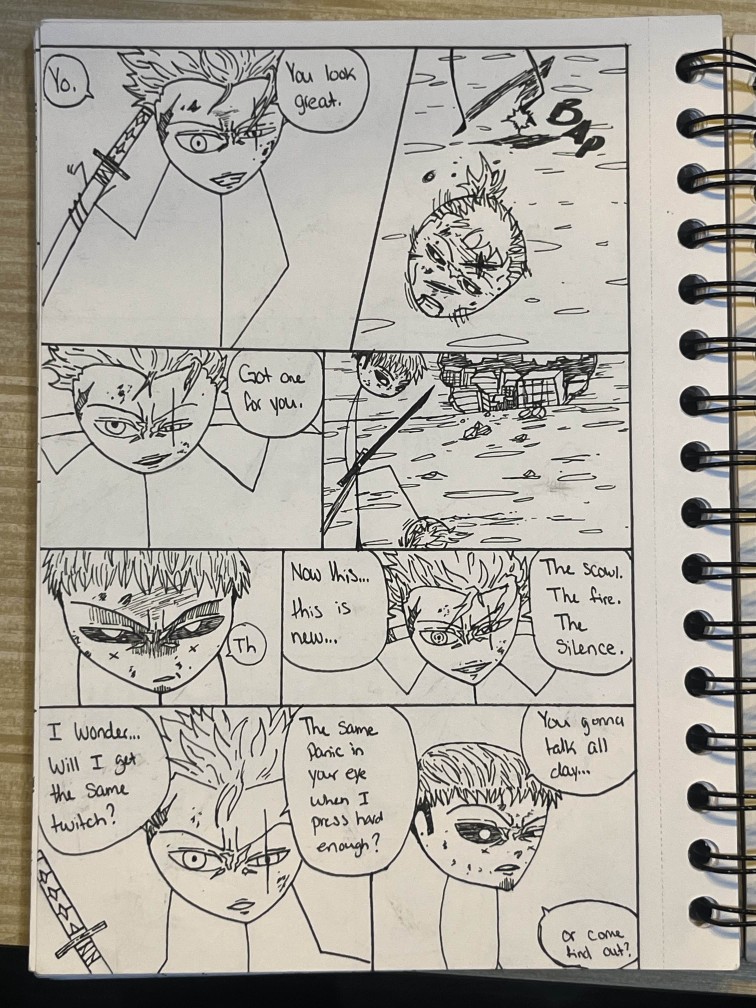 Yo.
You look
great.
BAP
Got one
for you.
Th
Now this...
this is
new...
The scowl.
The fire.
The
silence.
I wonder...
Will I get
the same
twitch?
The same
panic in
your eye
when I
press hard
enough?
You gonna
talk all
day...
or come
find out?